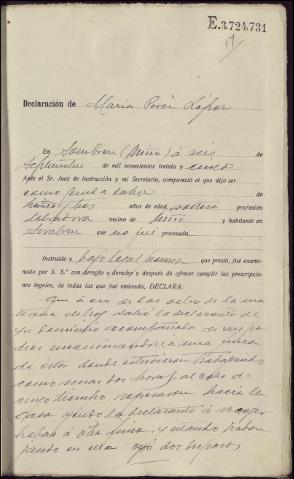 E.3.724.731
17
Declaración de Maria Perez López
En Sombreu (Miño) á seis de
Septiembre de mil novecientos treinta y cinco
Ante el Sr. Juez de instrucción y mi Secretario, compareció el que dijo ser
como queda dicho de
treinta y tres años de edad, soltera profesión
labradora vecino de Miño y habitante en
Sombreu que no fué procesada
Instruído y bajo legal promesa que prestó, fué examinado
por S. S.ª con arreglo a derecho y después de ofrecer cumplir las prescripciones
legales, de todas las que fué enterado, DECLARA:
Que á eso de las ocho de la ma
ñana de hoy salió la declarante de
su domicilio acompañada de sus pa
dres encaminandose a una finca
de éstos donde estuvieron trabajando
como unas dos horas, al cabo de
cuyo tiempo regresaron hacia la
casa yendo la declarante á
á otra finca, y cuando traba
jando en ella oyó dos disparos